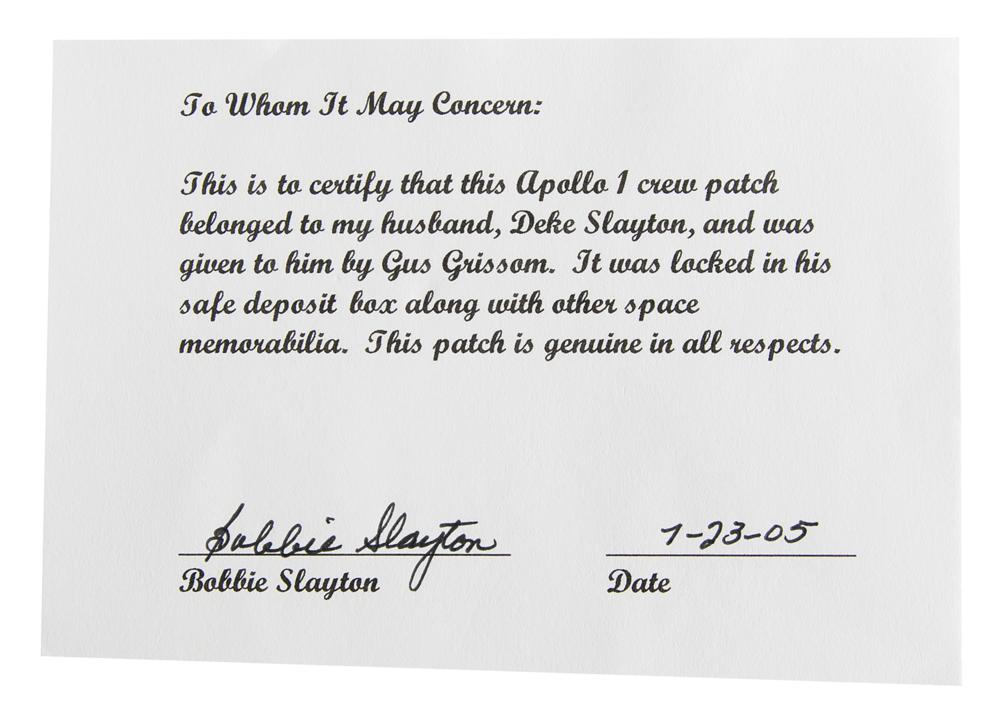 To Whom It May Concern:
This is to certify that this Apollo 1 crew patch
belonged to my husband, Deke Slayton, and was
given to him by Gus Grissom. It was locked in his
safe deposit box along with other space
memorabilia. This patch is genuine in all respects.
Bobbie Slayton 7-23-05
Bobbie Slayton Date